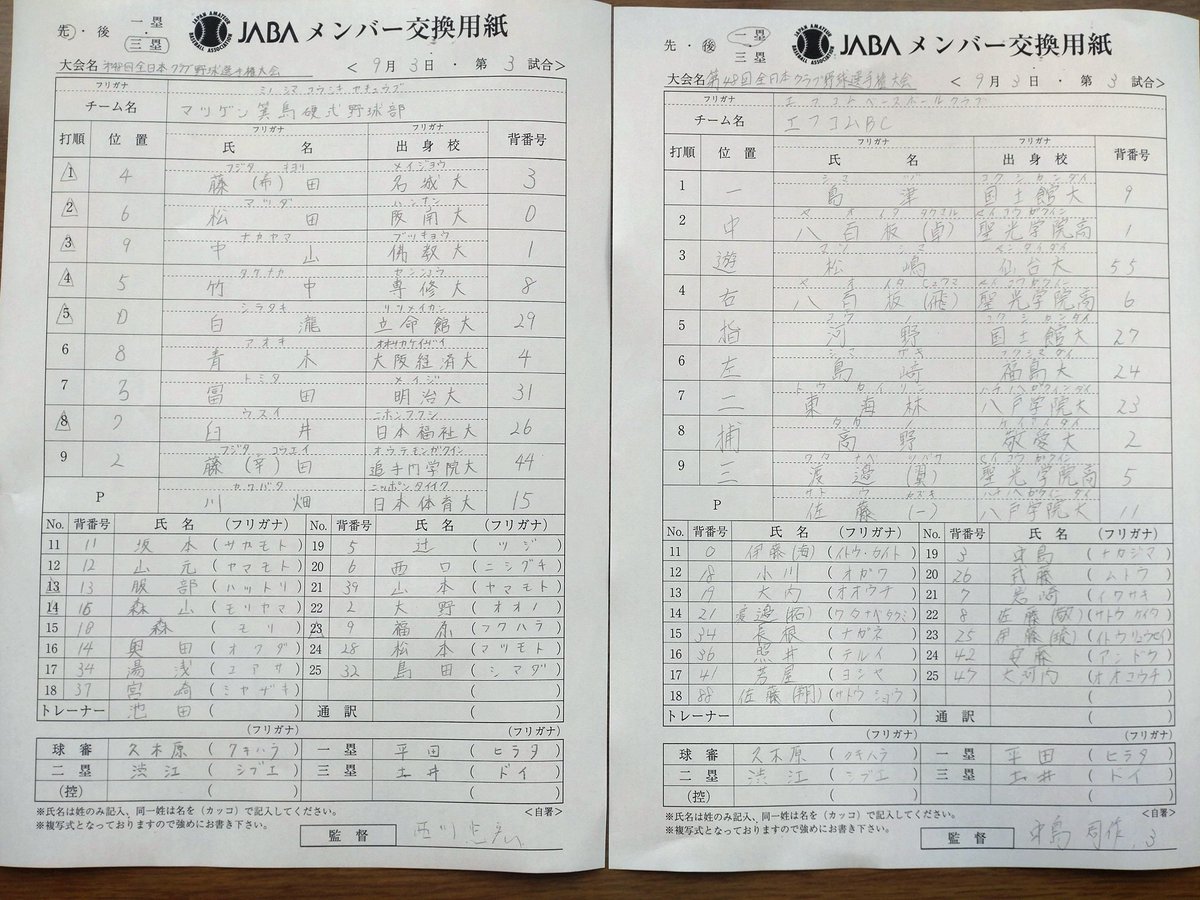 先・後 一塁 三塁
JABA メンバー交換用紙
大会名 第48回全日本クラブ野球選手権大会 < 9月3日・第3試合>
フリガナ ミノシマ コウシキ ヤキュウブ
チーム名 マツゲン箕島硬式野球部
打順 位置 フリガナ 氏名 フリガナ 出身校 背番号
フジタ キヨリ メイジョウ
1 4 藤(希)田 名城大 3
マツダ ハンナン
2 6 松田 阪南大 0
ナカヤマ ブツキョウ
3 9 中山 佛教大 1
タケナカ センシュウ
4 5 竹中 専修大 8
シラタキ リツメイカン
5 D 白瀧 立命館大 29
アオキ オオサカケイザイ
6 8 青木 大阪経済大 4
トミタ メイジ
7 3 冨田 明治大 31
ウスイ ニホンフクシ
8 7 臼井 日本福祉大 26
フジタ コウエイ オウテモンガクイン
9 2 藤(幸)田 追手門学院大 44
カワバタ ニッポンタイイク
P 川畑 日本体育大 15
No. 背番号 氏名 (フリガナ) No. 背番号 氏名 (フリガナ)
11 11 坂本 (サカモト) 19 5 辻 (ツジ)
12 12 山元 (ヤマモト) 20 6 西口 (ニシグチ)
13 13 服部 (ハットリ) 21 39 山本 (ヤマモト)
14 16 森山 (モリヤマ) 22 2 大野 (オオノ)
15 18 森 (モリ) 23 9 福原 (フクハラ)
16 14 奥田 (オクダ) 24 28 松本 (マツモト)
17 34 湯浅 (ユアサ) 25 32 島田 (シマダ)
18 37 宮崎 (ミヤザキ) ( )
トレーナー 池田 ( ) 通訳 ( )
(フリガナ) (フリガナ)
球審 久木原 (クキハラ) 一塁 平田 (ヒラタ)
二塁 渋江 (シブエ) 三塁 土井 (ドイ)
(控) ( ) ( )
※氏名は姓のみ記入、同一姓は名を(カッコ)で記入してください。 <自署>
※複写式となっておりますので強めにお書き下さい。
監督 西川
先・後 一塁 三塁
JABA メンバー交換用紙
大会名 第48回全日本クラブ野球選手権大会 < 9月3日・第3試合>
フリガナ エフコムベースボールクラブ
チーム名 エフコムBC
打順 位置 フリガナ 氏名 フリガナ 出身校 背番号
シマヅ コクシカンダイ
1 一 島津 国士舘大 9
ヤオイタ タクマル セイコウガクイン
2 中 八百板(卓) 聖光学院高 1
マツシマ センダイダイ
3 遊 松嶋 仙台大 55
ヤオイタ ヒュウマ セイコウガクイン
4 右 八百板(飛) 聖光学院高 6
コウノ コクシカンダイ
5 指 河野 国士舘大 27
シマザキ フクシマダイ
6 左 島崎 福島大 24
トウカイリン ハチノヘガクインダイ
7 二 東海林 八戸学院大 23
タカノ ケイアイダイ
8 捕 高野 敬愛大 2
ワタナベ セイコウガクイン
9 三 渡邉(真) 聖光学院高 5
サトウ カズキ ハチノヘガクインダイ
P 佐藤(一) 八戸学院大 11
No. 背番号 氏名 (フリガナ) No. 背番号 氏名 (フリガナ)
11 0 伊藤(海) (イトウ・カイト) 19 3 中島 (ナカジマ)
12 18 小川 (オガワ) 20 26 武藤 (ムトウ)
13 19 大内 (オオウチ) 21 7 岩崎 (イワサキ)
14 21 渡邉(拓) (ワタナベタクミ) 22 8 佐藤(敬) (サトウケイタ)
15 34 長根 (ナガネ) 23 25 伊藤(琉) (イトウリュウセイ)
16 36 照井 (テルイ) 24 42 安藤 (アンドウ)
17 41 芳屋 (ヨシヤ) 25 47 大河内 (オオコウチ)
18 88 佐藤(翔) (サトウショウ) ( )
トレーナー ( ) 通訳 ( )
(フリガナ) (フリガナ)
球審 久木原 (クキハラ) 一塁 平田 (ヒラタ)
二塁 渋江 (シブエ) 三塁 土井 (ドイ)
(控) ( ) ( )
※氏名は姓のみ記入、同一姓は名を(カッコ)で記入してください。 <自署>
※複写式となっておりますので強めにお書き下さい。
監督 中島 周作